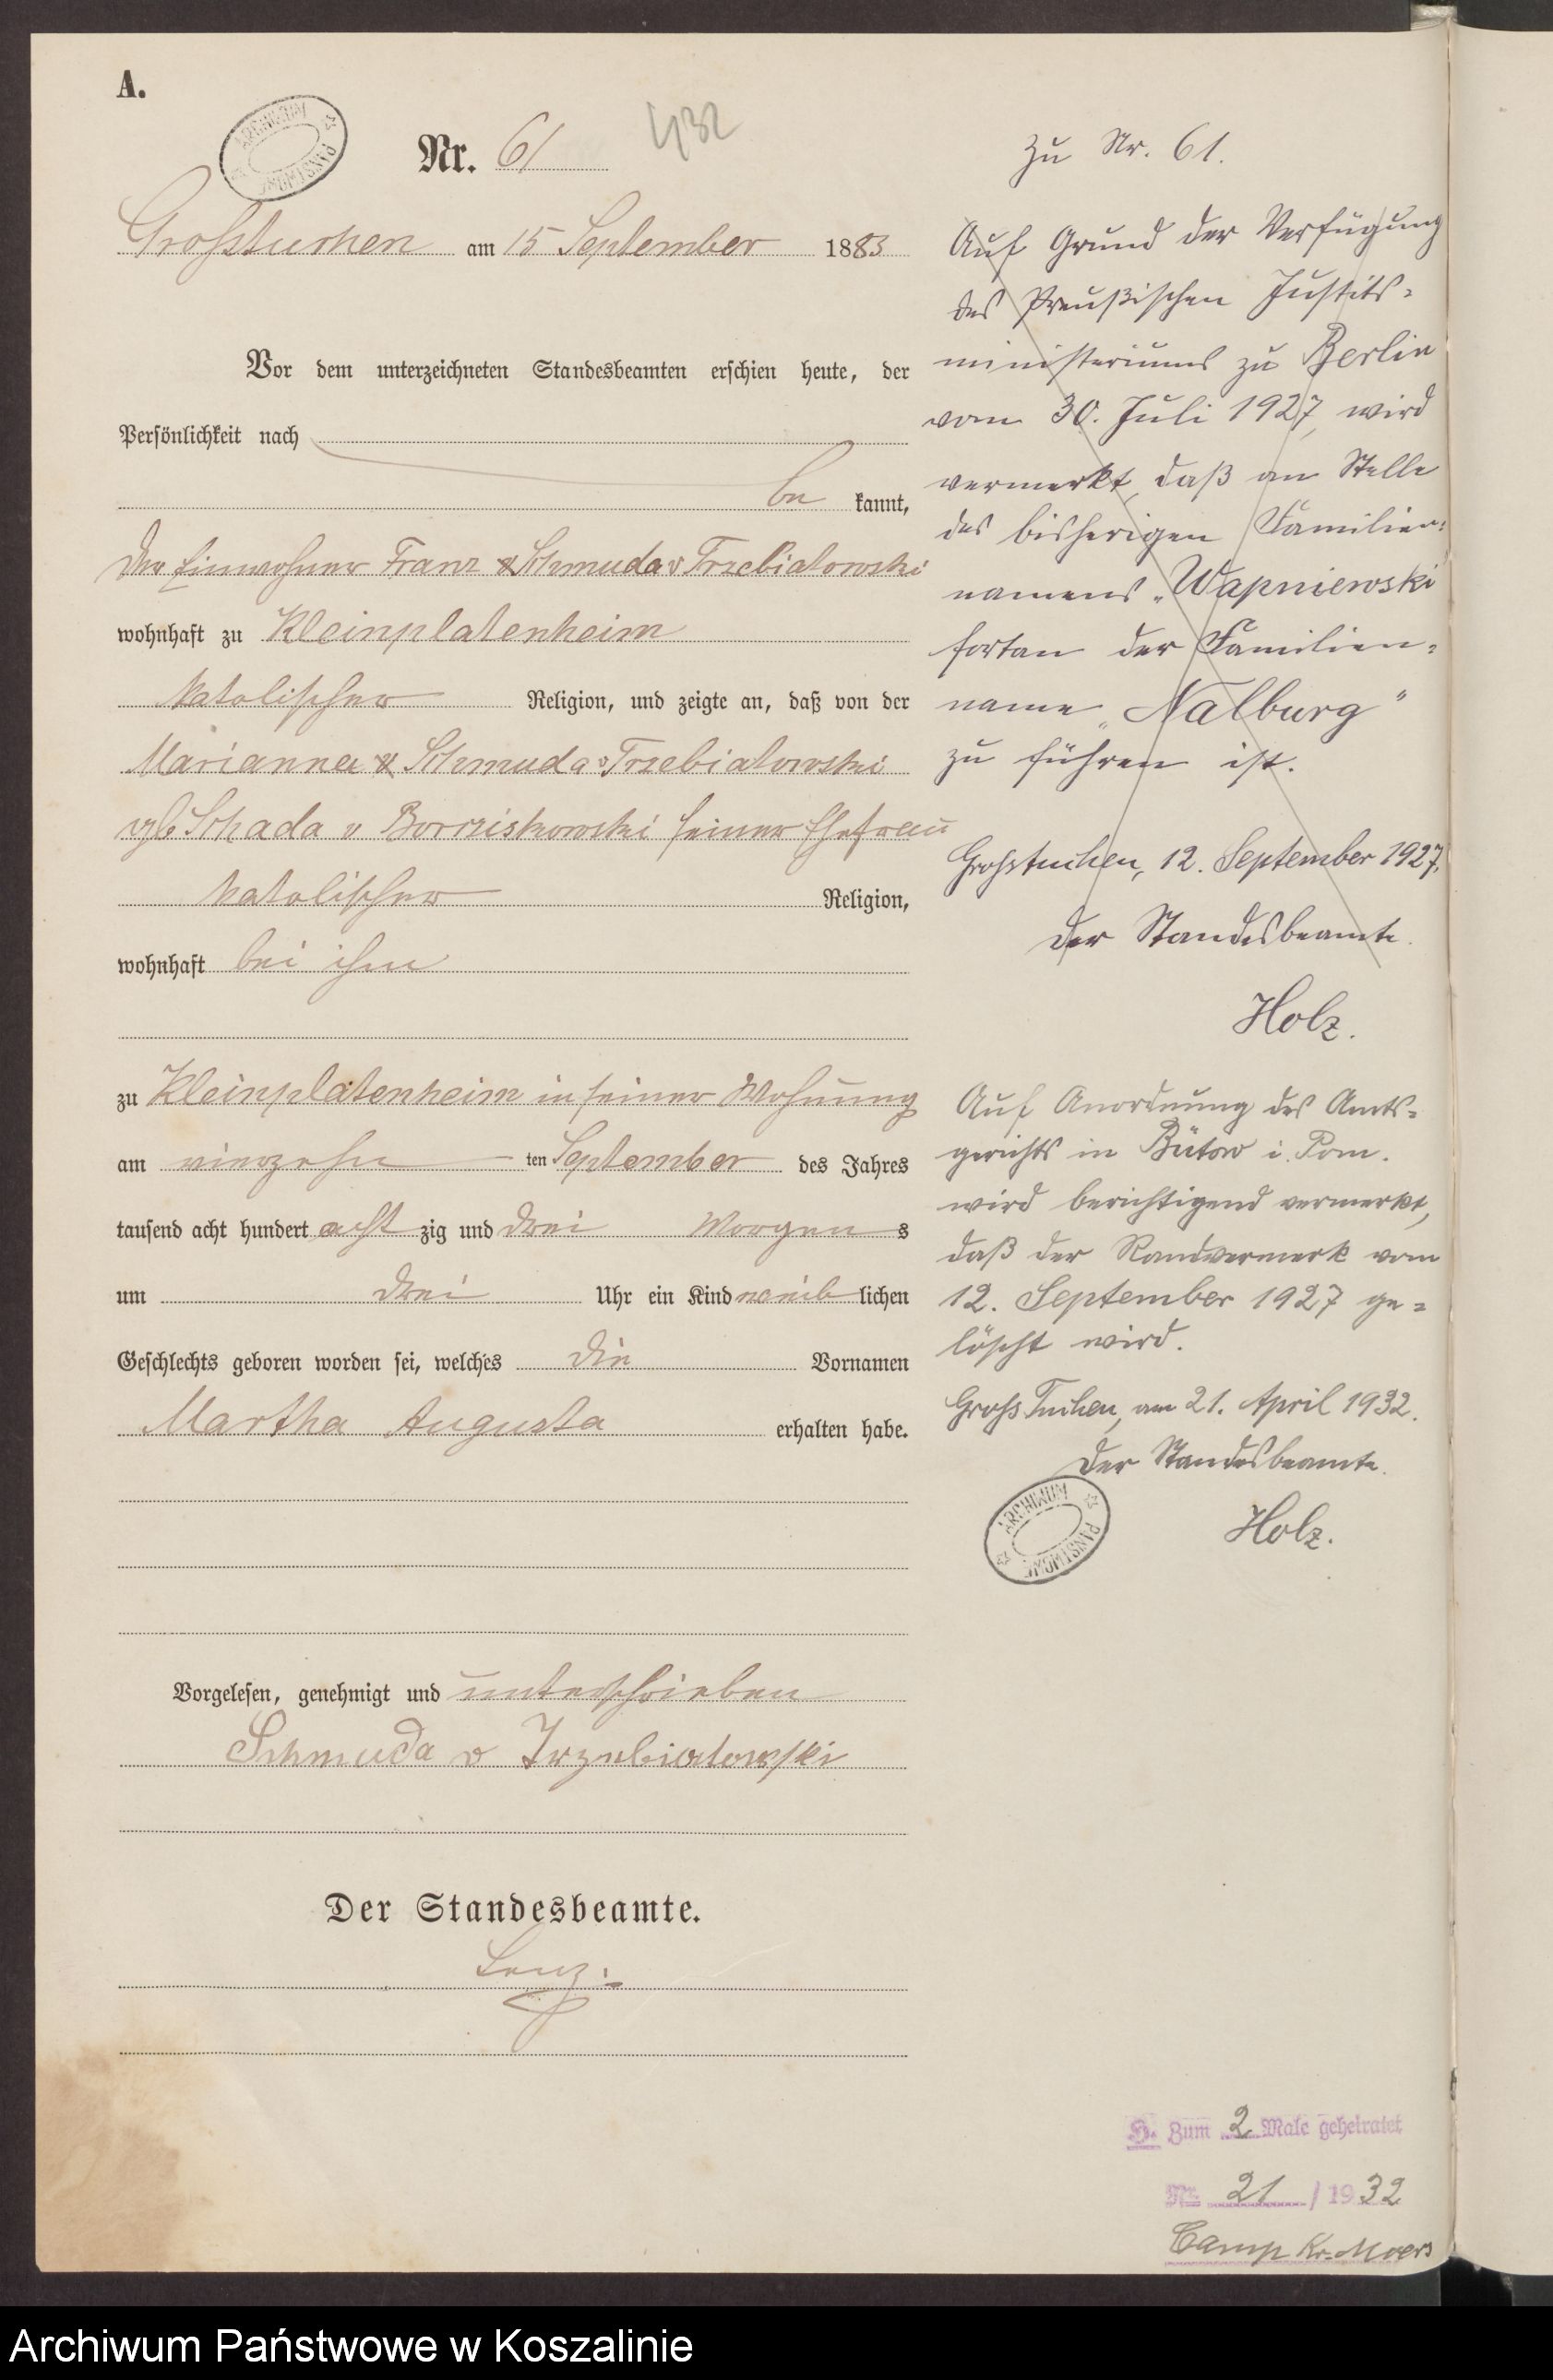 A.
ARCHIWUM PAŃSTWOWE
Nr. 61
432
Großtuchen am 15 September 1883
Vor dem unterzeichneten Standesbeamten erschien heute, der
Persönlichkeit nach
be kannt,
der Einwohner Franz Schmuda v Trzebiatowski
wohnhaft zu Kleinplatenheim
katolischer Religion, und zeigte an, daß von der
Marianna Schmuda v Trzebiatowski
Schada v Borrziskowski seiner Ehefrau
katolischer Religion,
wohnhaft bei ihm
zu Kleinplatenheim in seiner Wohnung
am vierzehn ten September des Jahres
tausend acht hundert acht zig und drei Morgen s
um drei Uhr ein Kind weib lichen
Geschlechts geboren worden sei, welches die Vornamen
Martha Augusta erhalten habe.
Vorgelesen, genehmigt und unterschrieben
Schmuda v Trzebiatowski
Der Standesbeamte.
Lenz.
Zu Nr. 61.
Auf Grund der Verfügung
des Preußischen Justiz-
ministeriums zu Berlin
vom 30. Juli 1927, wird
vermerkt, daß an Stelle
des bisherigen Familien-
namens „Wapniewski
fortan der Familien-
name „Nalburg"
zu führen ist.
Großtuchen, 12. September 1927.
Der Standesbeamte.
Holz.
Auf Anordnung des Amts-
gerichts in Bütow i. Pom.
wird berichtigend vermerkt,
daß der Randvermerk vom
12. September 1927 ge-
löscht wird.
Groß Tuchen, am 21. April 1932.
Der Standesbeamte.
Holz.
ARCHIWUM PAŃSTWOWE
H. Zum 2 Male geheiratet
Nr. 21 / 1932
Camp Kr. Moers
Archiwum Państwowe w Koszalinie